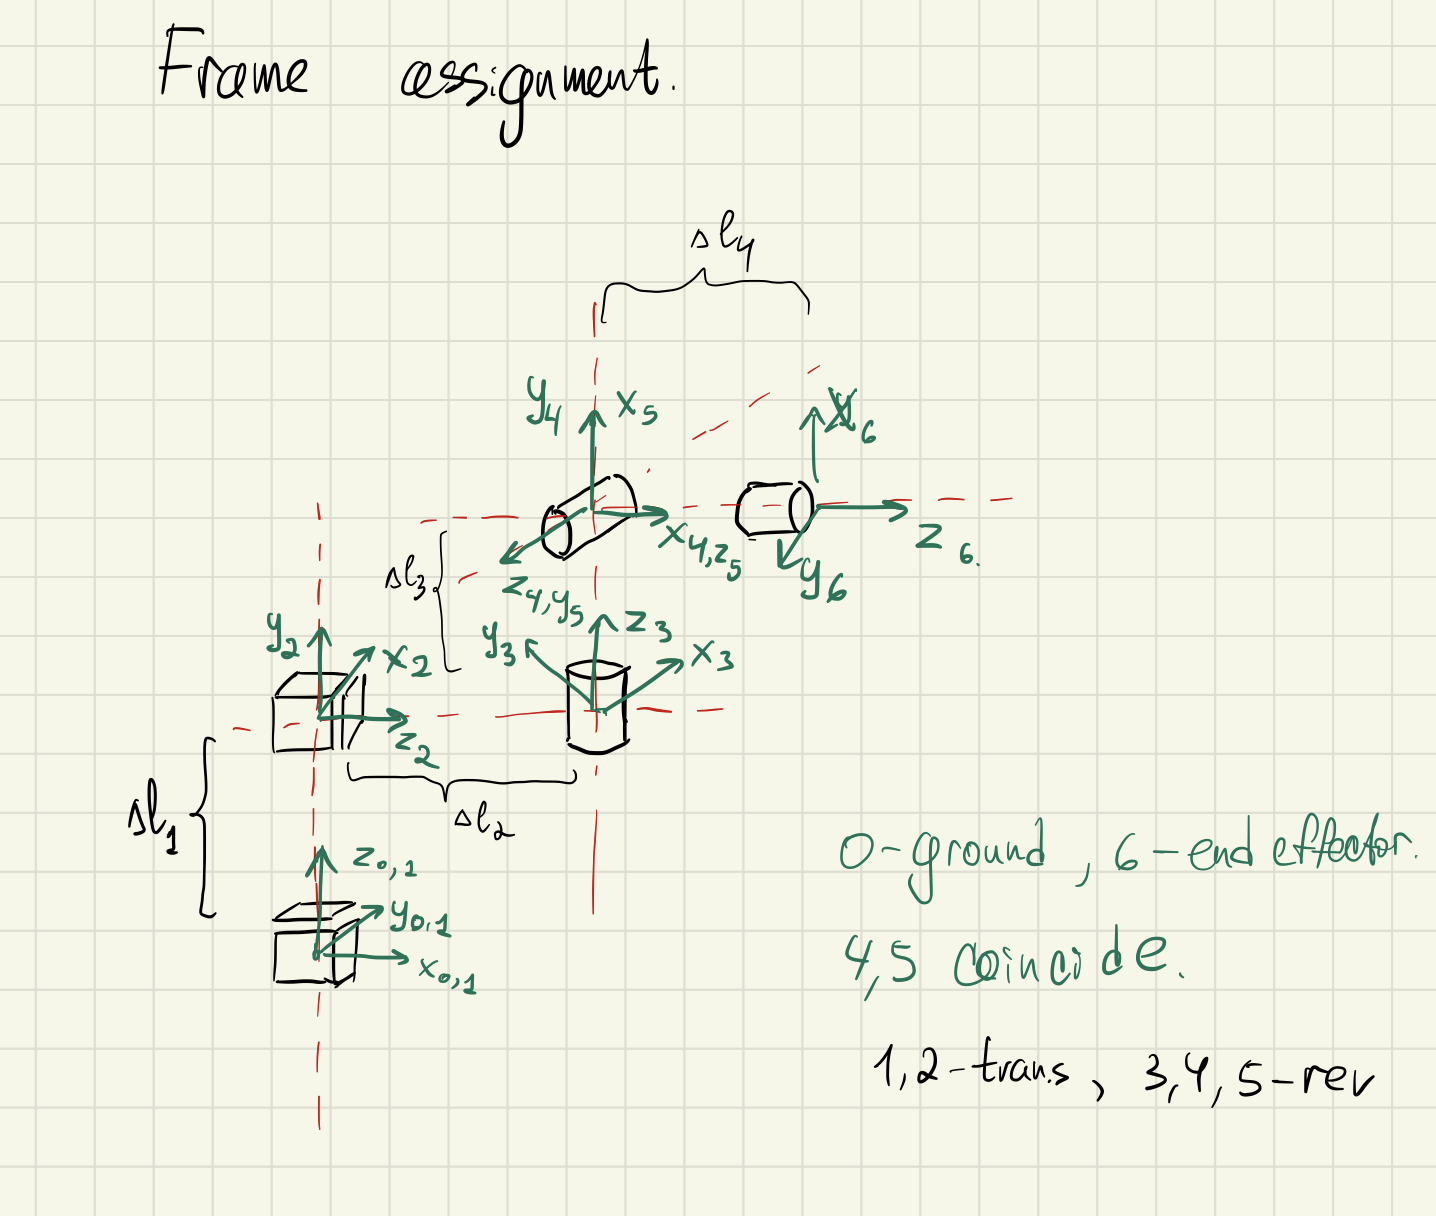 Frame assignment.
Δl₄
y₄ x₅
x₆
x₄,z₅
z₆.
Δl₃
z₄,y₅
y₆
y₂
x₂
y₃ z₃
x₃
z₂
Δl₁
Δl₂
z₀,₁
y₀,₁
x₀,₁
0-ground, 6-end effector.
4,5 coincide.
1,2-trans, 3,4,5-rev